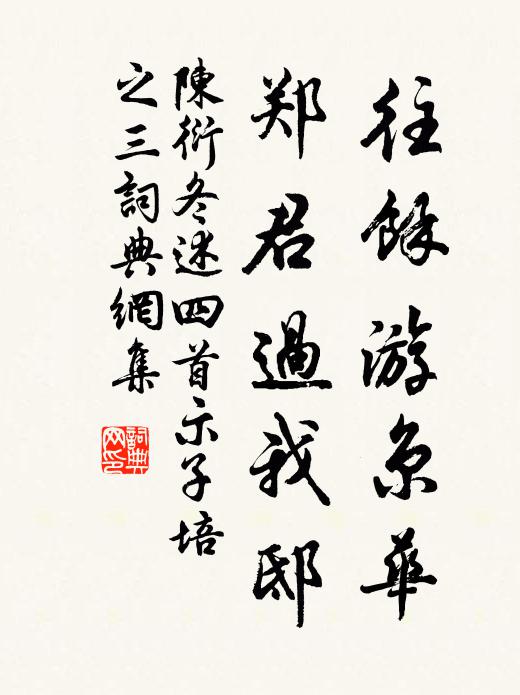 往餘游京華
郑君過我邸
陳衍冬述四首示子培
之三詞典網集
詞典网印